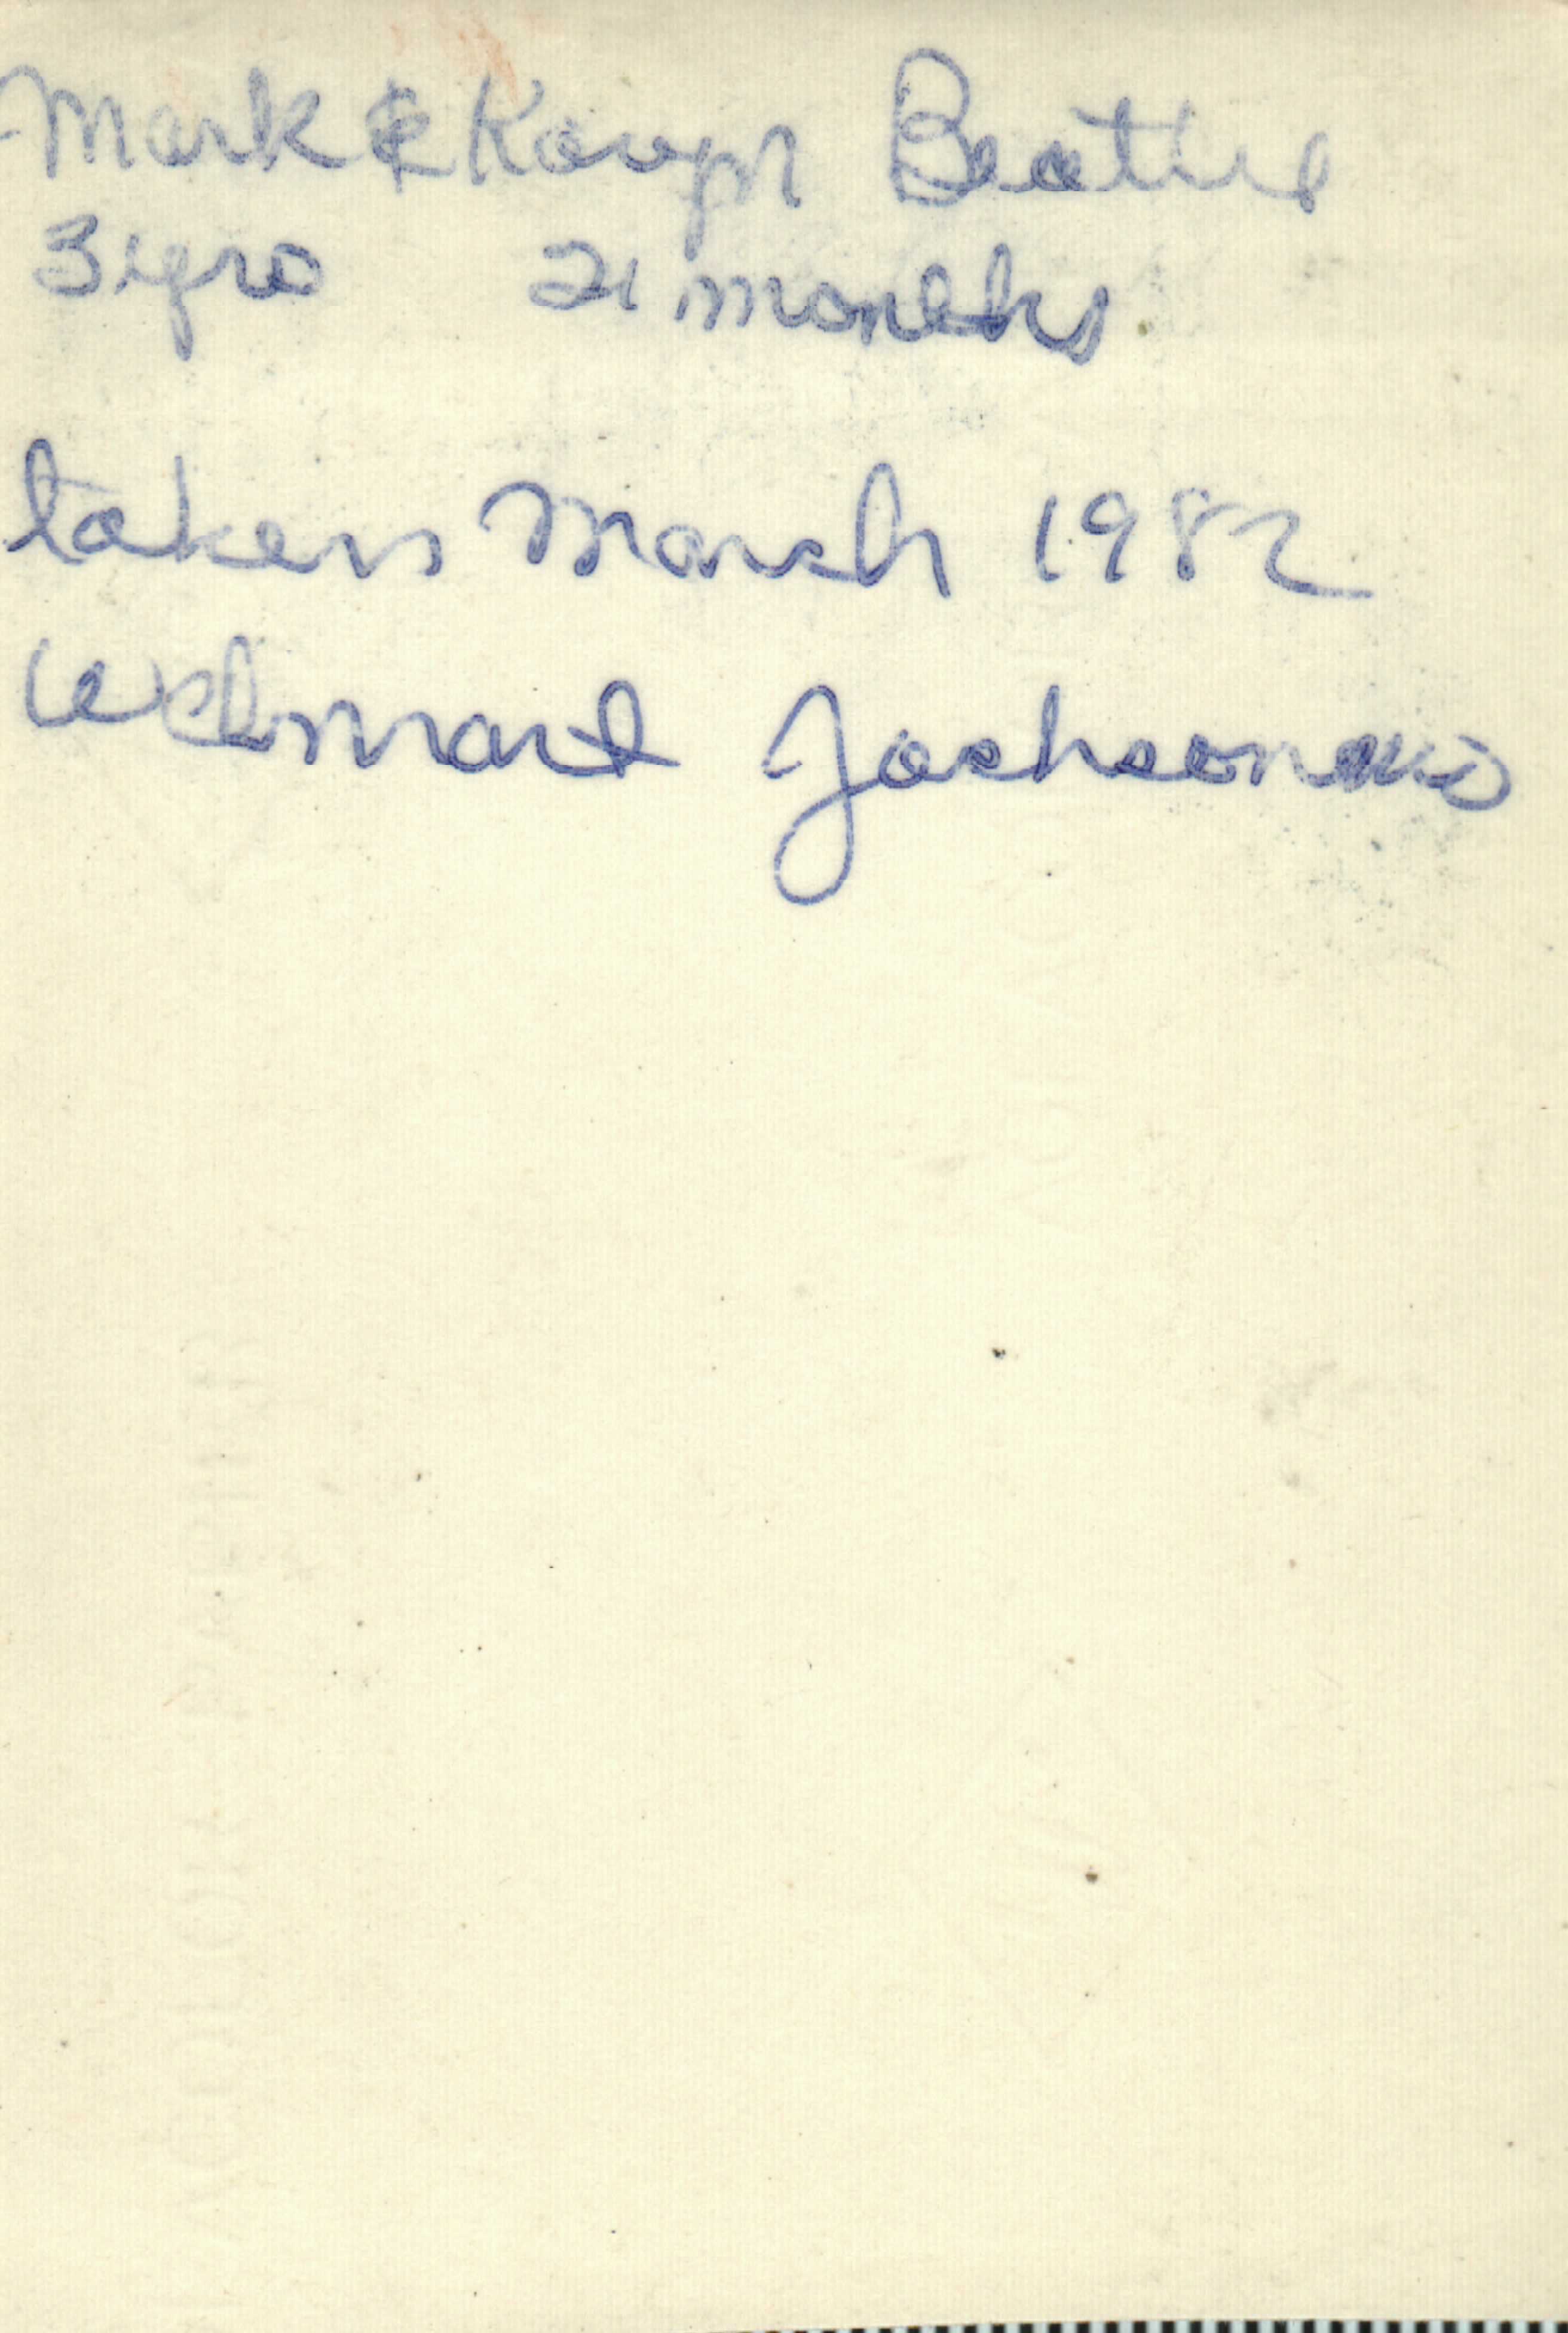 Mark & Karyn Beattie
3 yrs 21 months
taken March 1982
Walmart Jackson MO